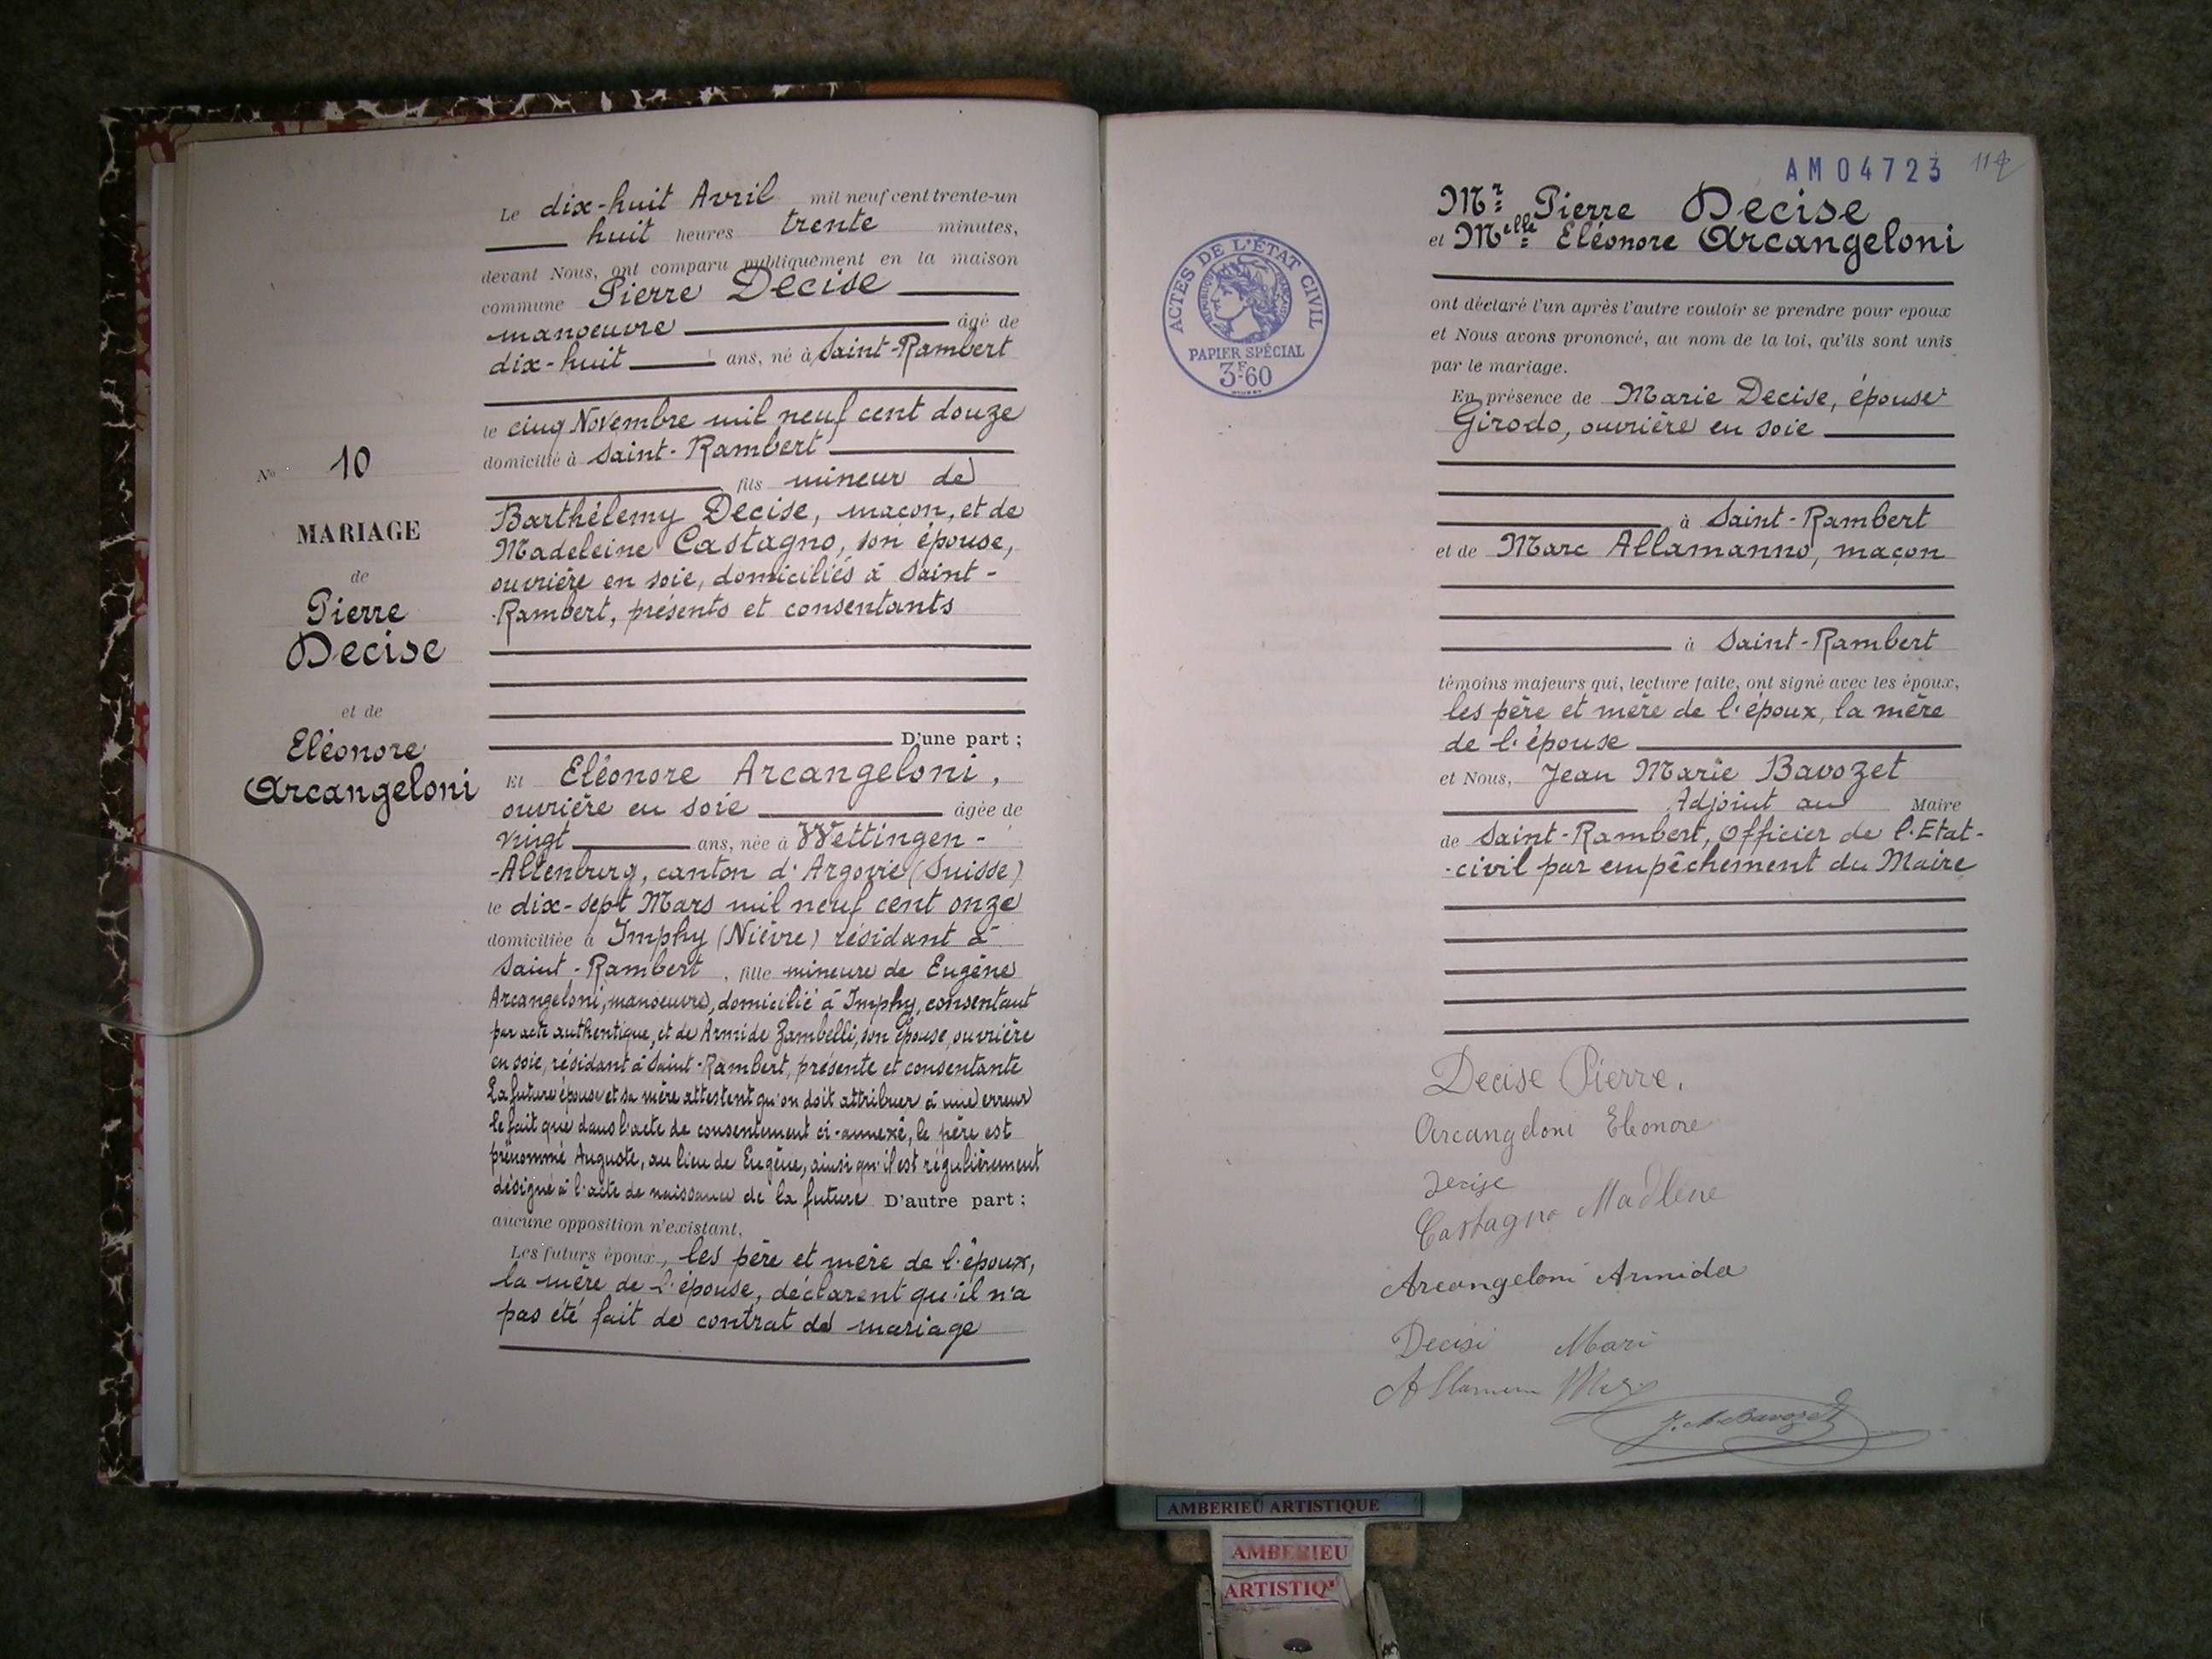 Le dix-huit Avril mil neuf cent trente-un
huit heures trente minutes,
devant Nous, ont comparu publiquement en la maison
commune Pierre Decise
manoeuvre âgé de
dix-huit ans, né à Saint-Rambert
le cinq Novembre mil neuf cent douze
domicilié à Saint-Rambert
fils mineur de
Barthélemy Decise, maçon, et de
Madeleine Castagno, son épouse,
ouvrière en soie, domiciliés à Saint-
-Rambert, présents et consentants
D'une part ;
Nº 10
MARIAGE
de
Pierre
Decise
et de
Eléonore
Arcangeloni
Et Eléonore Arcangeloni,
ouvrière en soie âgée de
vingt ans, née à Wettingen-
-Altenburg, canton d'Argovie (Suisse)
le dix-sept Mars mil neuf cent onze
domiciliée à Imphy (Nièvre) résidant à
Saint-Rambert, fille mineure de Eugène
Arcangeloni, manoeuvre, domicilié à Imphy, consentant
par acte authentique, et de Armide Zambelli, son épouse, ouvrière
en soie, résidant à Saint-Rambert, présente et consentante
La future épouse et sa mère attestent qu'on doit attribuer à une erreur
le fait que dans l'acte de consentement ci-annexé, le père est
prénommé Auguste, au lieu de Eugène, ainsi qu'il est régulièrement
désigné à l'acte de naissance de la future D'autre part ;
aucune opposition n'existant.
Les futurs époux, les père et mère de l'époux,
la mère de l'épouse, déclarent qu'il n'a
pas été fait de contrat de mariage
AM04723
Mr Pierre Decise
et Melle Eléonore Arcangeloni
ont déclaré l'un après l'autre vouloir se prendre pour epoux
et Nous avons prononcé, au nom de la loi, qu'ils sont unis
par le mariage.
En présence de Marie Decise, épouse
Girodo, ouvrière en soie
à Saint-Rambert
et de Marc Allamanno, maçon
à Saint-Rambert
témoins majeurs qui, lecture faite, ont signé avec les époux,
les père et mère de l'époux, la mère
de l'épouse
et Nous, Jean Marie Bavozet
Adjoint au Maire
de Saint-Rambert, Officier de l'Etat-
-civil par empêchement du Maire
ACTES DE L'ÉTAT CIVIL
RÉPUBLIQUE FRANÇAISE
PAPIER SPÉCIAL
3F60
Decise Pierre.
Arcangeloni Eleonore
Castagno Madlene
Arcangeloni Armida
Decisi Mari
J. M Bavozet
AMBERIEU ARTISTIQUE
AMBERIEU
ARTISTIQ